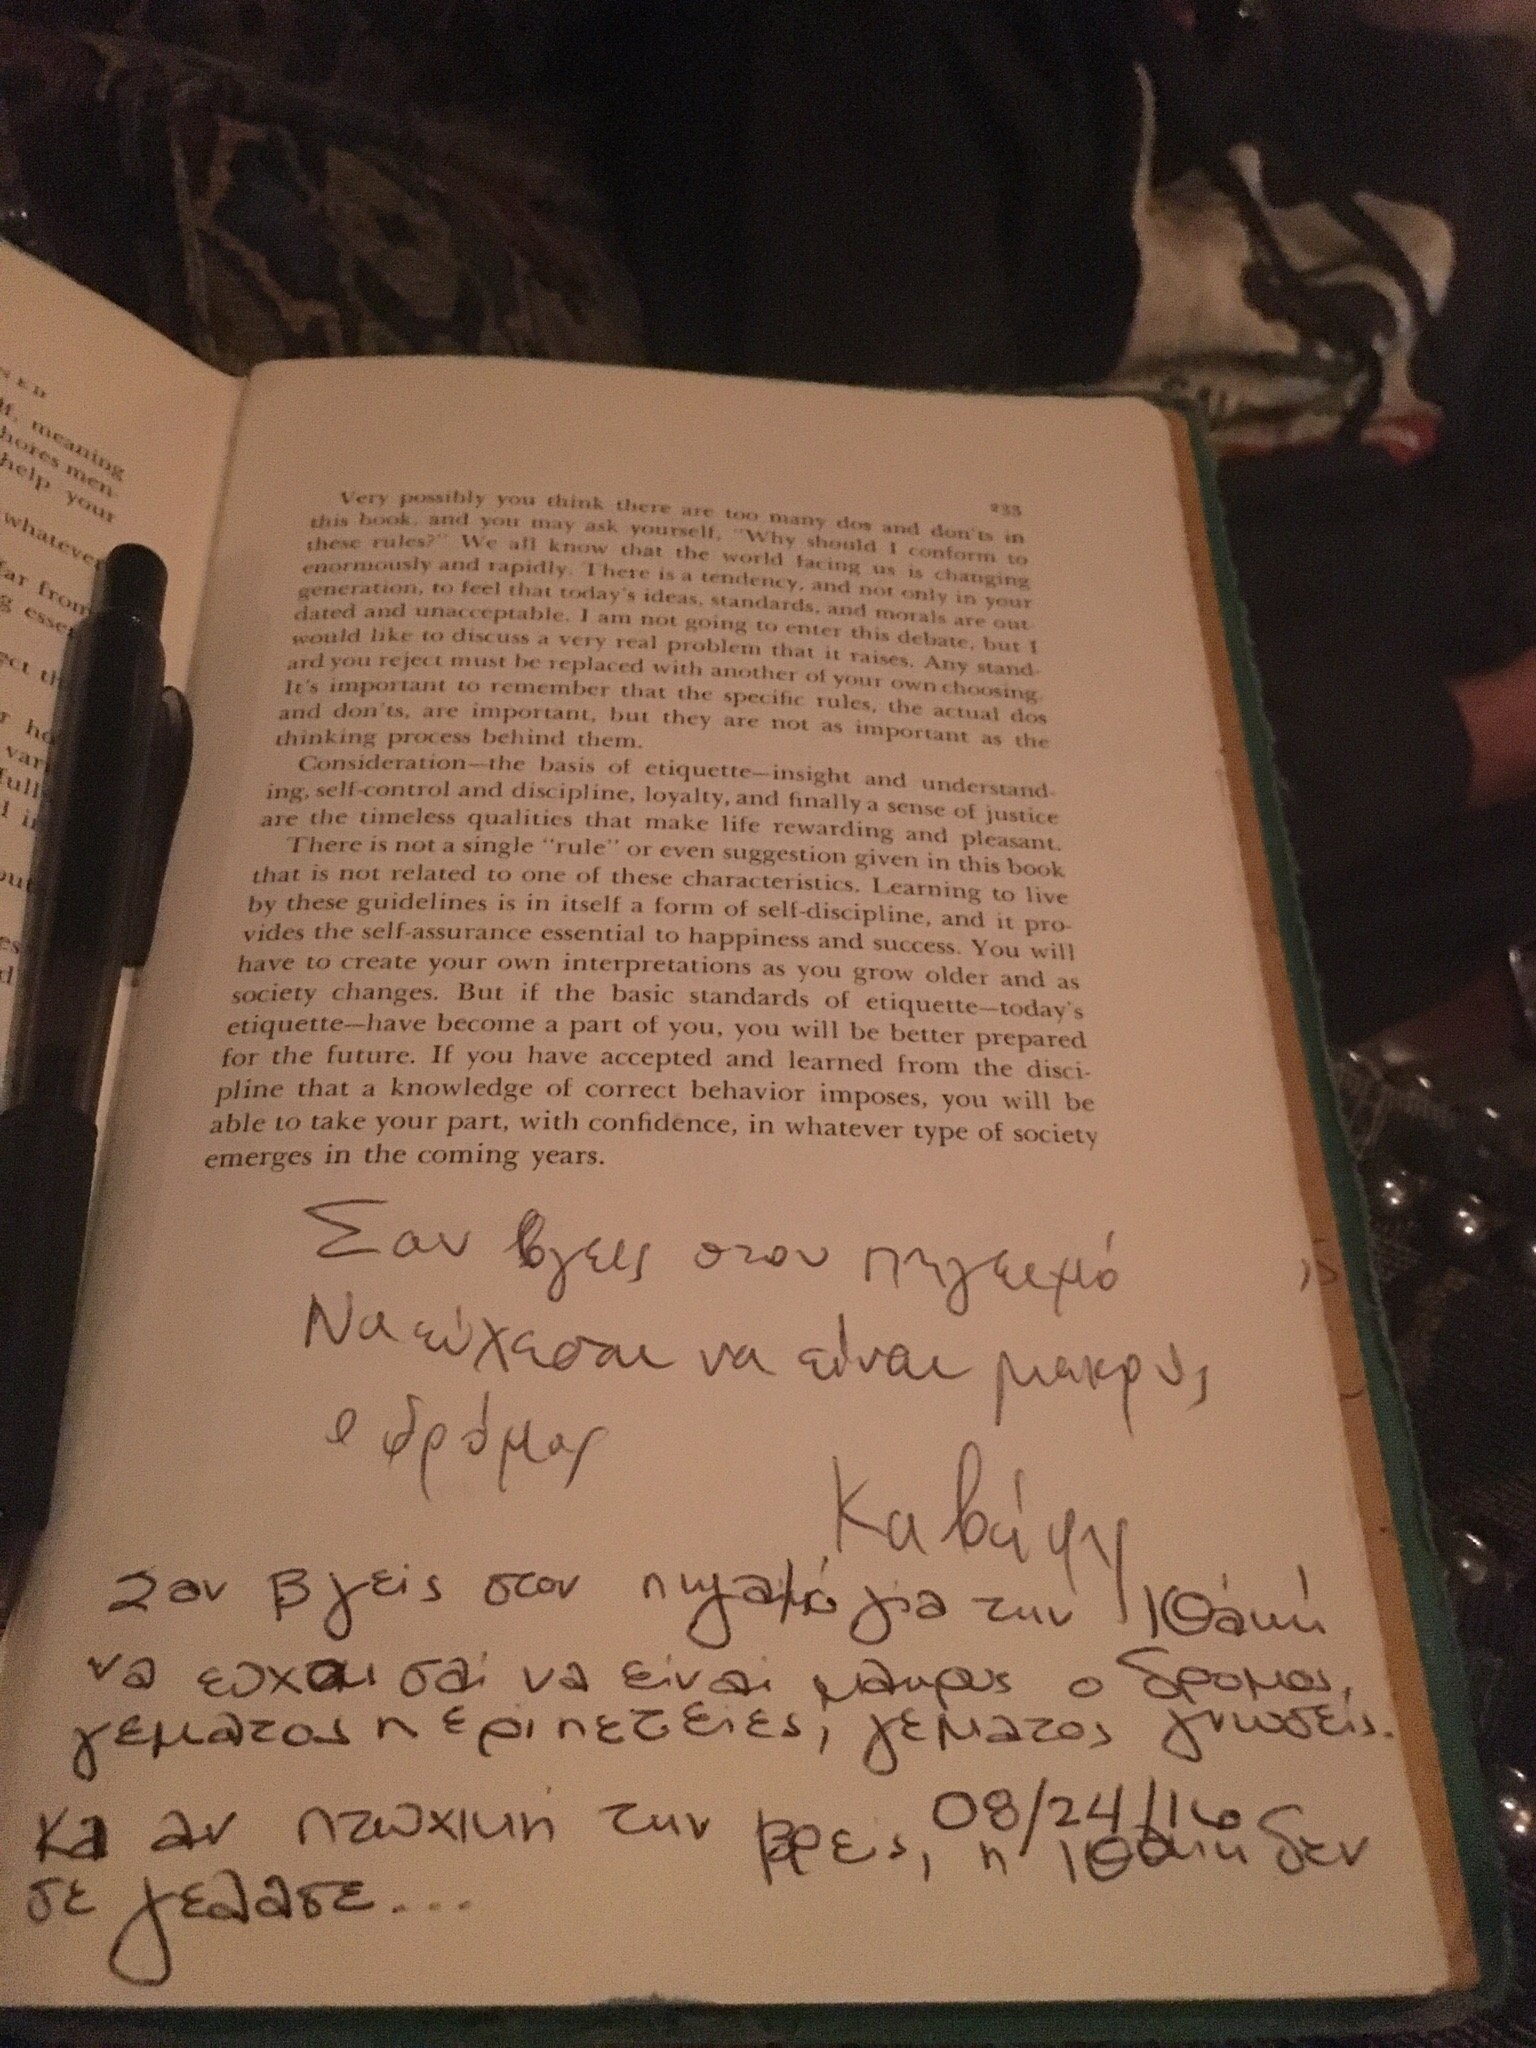 NED
lf, meaning
hores men-
help your
whatever
far from
ect th
235
Very possibly you think there are too many dos and don'ts in
this book, and you may ask yourself, "Why should I conform to
these rules?" We all know that the world facing us is changing
enormously and rapidly. There is a tendency, and not only in your
generation, to feel that today's ideas, standards, and morals are out-
dated and unacceptable. I am not going to enter this debate, but I
would like to discuss a very real problem that it raises. Any stand-
ard you reject must be replaced with another of your own choosing.
It's important to remember that the specific rules, the actual dos
and don'ts, are important, but they are not as important as the
thinking process behind them.
Consideration—the basis of etiquette—insight and understand-
ing, self-control and discipline, loyalty, and finally a sense of justice
are the timeless qualities that make life rewarding and pleasant.
There is not a single "rule" or even suggestion given in this book
that is not related to one of these characteristics. Learning to live
by these guidelines is in itself a form of self-discipline, and it pro-
vides the self-assurance essential to happiness and success. You will
have to create your own interpretations as you grow older and as
society changes. But if the basic standards of etiquette—today's
etiquette—have become a part of you, you will be better prepared
for the future. If you have accepted and learned from the disci-
pline that a knowledge of correct behavior imposes, you will be
able to take your part, with confidence, in whatever type of society
emerges in the coming years.
Σαν βγεις στον πηγειμό
Να εύχεσαι να είναι μακρύς
ο δρόμος
Καβάφη
Σαν βγεις στον πηγαιμό για την Ιθάκη
να ευχαι σαι να είναι μακρυς ο δρομος,
γεματος περιπετειες, γεματος γνωσεις.
Κα αν πτωχική την βρεις, η Ιθακη δεν
08/24/16
σε γελασε...